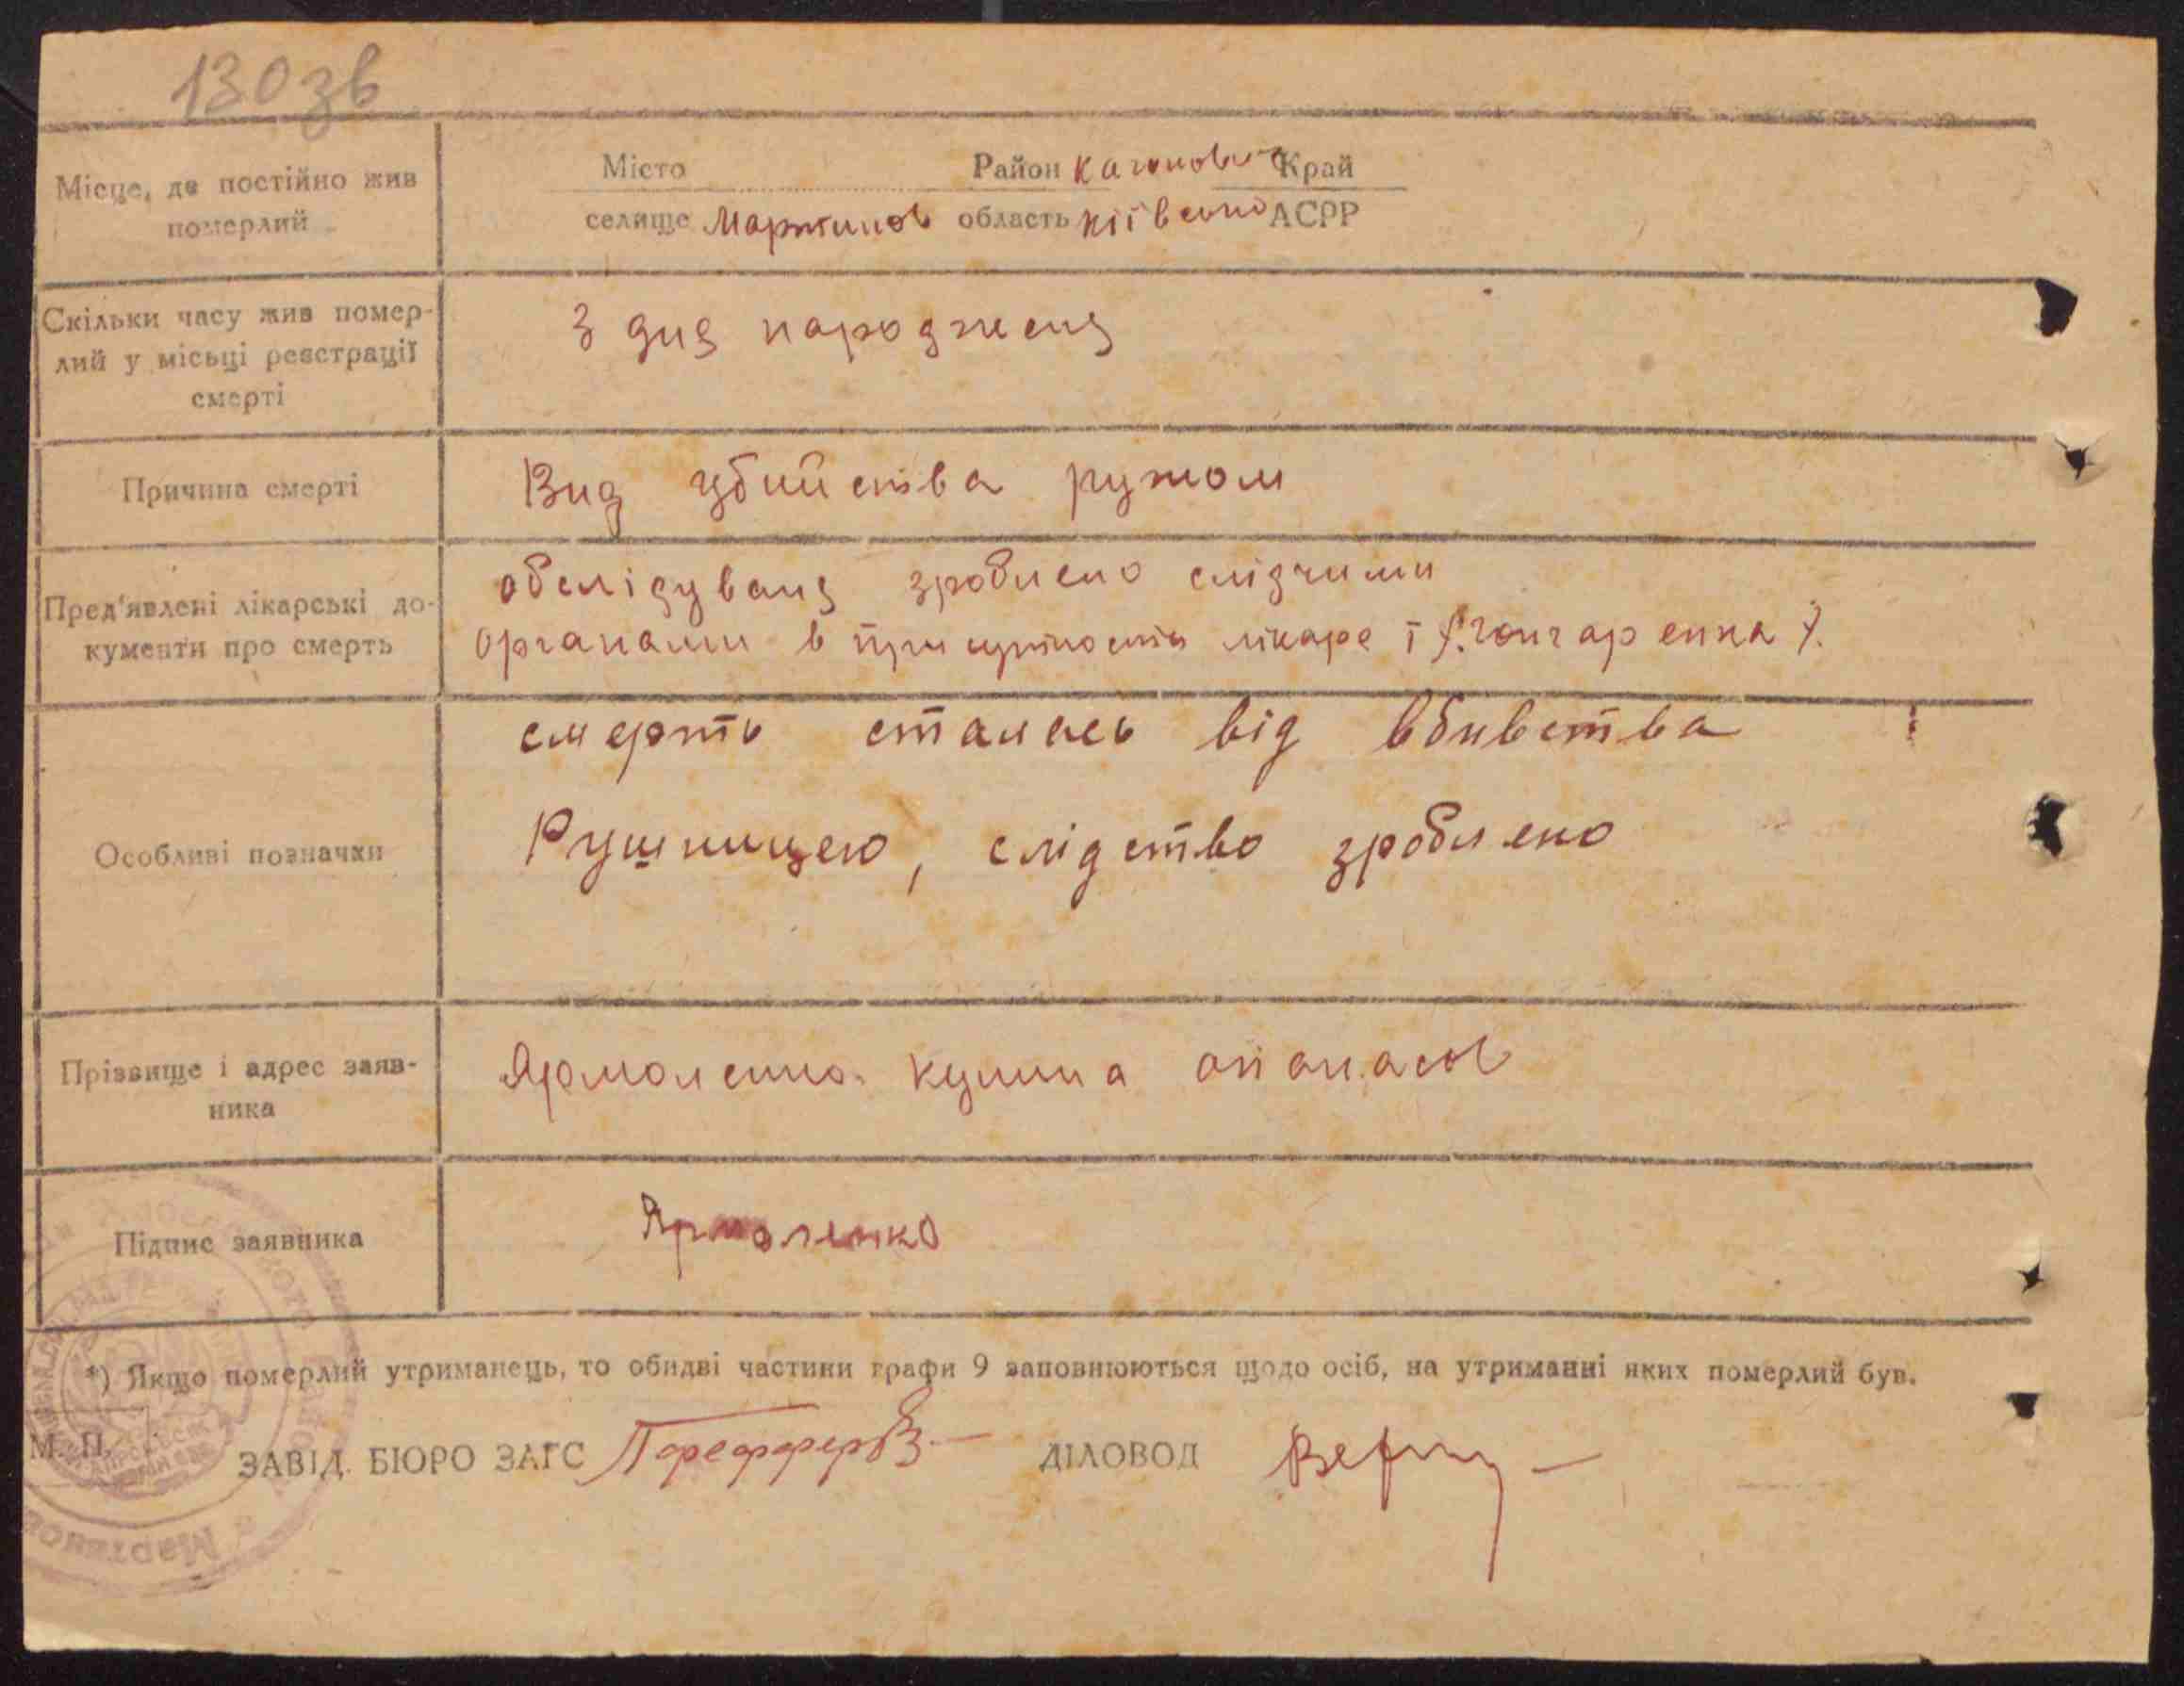 130 зв
Місце, де постійно жив
померлий
Місто Район Каганович Край
селище Мартинов область київсько АСРР
Скільки часу жив помер-
лий у місьці реєстрації
смерті
З дня народженя
Причина смерті
Вид убийства ружом
Пред'явлені лікарські до-
кументи про смерть
обслідуваня зроблено слідчими
органами в присутности лікаре і /:гончаренка/.
Особливі позначки
смерть сталась від вбивства
Рушницею, слідство зроблено
Прізвище і адрес заяв-
ника
Ярмоленко Кулина апанасов
Підпис заявника
Ярмоленко
*) Якщо померлий утриманець, то обидві частини графи 9 заповнюються щодо осіб, на утриманні яких померлий був.
М. П.
ЗАВІД. БЮРО ЗАГС ДІЛОВОД